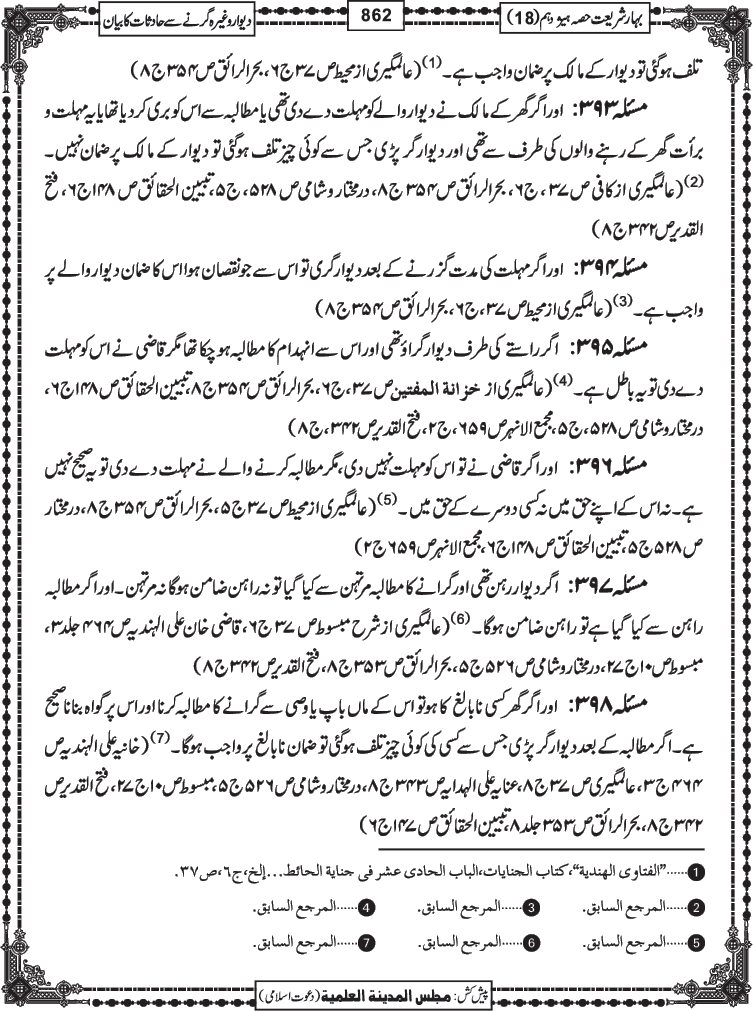 بہارِ شریعت حصہ ہیژدہم (18)
862
دیوار وغیرہ گرنے سے حادثات کا بیان
تلف ہوگئی تو دیوار کے مالک پر ضمان واجب ہے۔(1) (عالمگیری از محیط ص ۳۷ ج ۶، بحرالرائق ص ۳۵۴ ج ۸)
مسئلہ ۳۹۳: اور اگر گھر کے مالک نے دیوار والے کو مہلت دے دی تھی یا مطالبہ سے اس کو بری کردیا تھا یا یہ مہلت و
برأت گھر کے رہنے والوں کی طرف سے تھی اور دیوار گر پڑی جس سے کوئی چیز تلف ہوگئی تو دیوار کے مالک پر ضمان نہیں۔
(2) (عالمگیری از کافی ص ۳۷، ج ۶، بحرالرائق ص ۳۵۴ ج ۸، درمختار و شامی ص ۵۲۸، ج ۵، تبیین الحقائق ص ۱۴۸ ج ۶، فتح
القدیر ص ۳۴۲ ج ۸)
مسئلہ ۳۹۴: اور اگر مہلت کی مدت گزرنے کے بعد دیوار گری تو اس سے جو نقصان ہوا اس کا ضمان دیوار والے پر
واجب ہے۔(3) (عالمگیری از محیط ص ۳۷، ج ۶، بحرالرائق ص ۳۵۴ ج ۸)
مسئلہ ۳۹۵: اگر راستے کی طرف دیوار گراؤ تھی اور اس سے انہدام کا مطالبہ ہو چکا تھا مگر قاضی نے اس کو مہلت
دے دی تو یہ باطل ہے۔(4) (عالمگیری از خزانة المفتین ص ۳۷، ج ۶، بحرالرائق ص ۳۵۴ ج ۸، تبیین الحقائق ص ۱۴۸ ج ۶،
درمختار و شامی ص ۵۲۸، ج ۵، مجمع الانہر ص ۶۵۹، ج ۲، فتح القدیر ص ۳۴۲، ج ۸)
مسئلہ ۳۹۶: اور اگر قاضی نے تو اس کو مہلت نہیں دی، مگر مطالبہ کرنے والے نے مہلت دے دی تو یہ صحیح نہیں
ہے۔ نہ اس کے اپنے حق میں نہ کسی دوسرے کے حق میں۔(5) (عالمگیری از محیط ص ۳۷ ج ۵، بحرالرائق ص ۳۵۴ ج ۸، درمختار
ص ۵۲۸ ج ۵، تبیین الحقائق ص ۱۴۸ ج ۶، مجمع الانہر ص ۶۵۹ ج ۲)
مسئلہ ۳۹۷: اگر دیوار رہن تھی اور گرانے کا مطالبہ مرتہن سے کیا گیا تو نہ راہن ضامن ہوگا نہ مرتہن۔ اور اگر مطالبہ
راہن سے کیا گیا ہے تو راہن ضامن ہوگا۔(6) (عالمگیری از شرح مبسوط ص ۳۷ ج ۶، قاضی خان علی الہندیہ ص ۴۶۴ جلد ۳،
مبسوط ص ۱۰ ج ۲۷، درمختار و شامی ص ۵۲۶ ج ۵، بحرالرائق ص ۳۵۳ ج ۸، فتح القدیر ص ۳۴۲ ج ۸)
مسئلہ ۳۹۸: اور اگر گھر کسی نابالغ کا ہو تو اس کے ماں باپ یا وصی سے گرانے کا مطالبہ کرنا اور اس پر گواہ بنانا صحیح
ہے۔ اگر مطالبہ کے بعد دیوار گر پڑی جس سے کسی کی کوئی چیز تلف ہوگئی تو ضمان نابالغ پر واجب ہوگا۔(7) (خانیہ علی الہندیہ ص
۴۶۴ ج ۳، عالمگیری ص ۳۷ ج ۸، عنایہ علی الہدایہ ص ۳۴۳ ج ۸، درمختار و شامی ص ۵۲۶ ج ۵، مبسوط ص ۱۰ ج ۲۷، فتح القدیر ص
۳۴۲ ج ۸، بحرالرائق ص ۳۵۳ جلد ۸، تبیین الحقائق ص ۱۴۷ ج ۶)
1 ......"الفتاوى الهندية"، كتاب الجنايات، الباب الحادى عشر فى جناية الحائط...إلخ، ج٦، ص٣٧.
2 ......المرجع السابق. 3 ......المرجع السابق. 4 ......المرجع السابق.
5 ......المرجع السابق. 6 ......المرجع السابق. 7 ......المرجع السابق.
پیش کش: مجلس المدینة العلمیة (دعوتِ اسلامی)